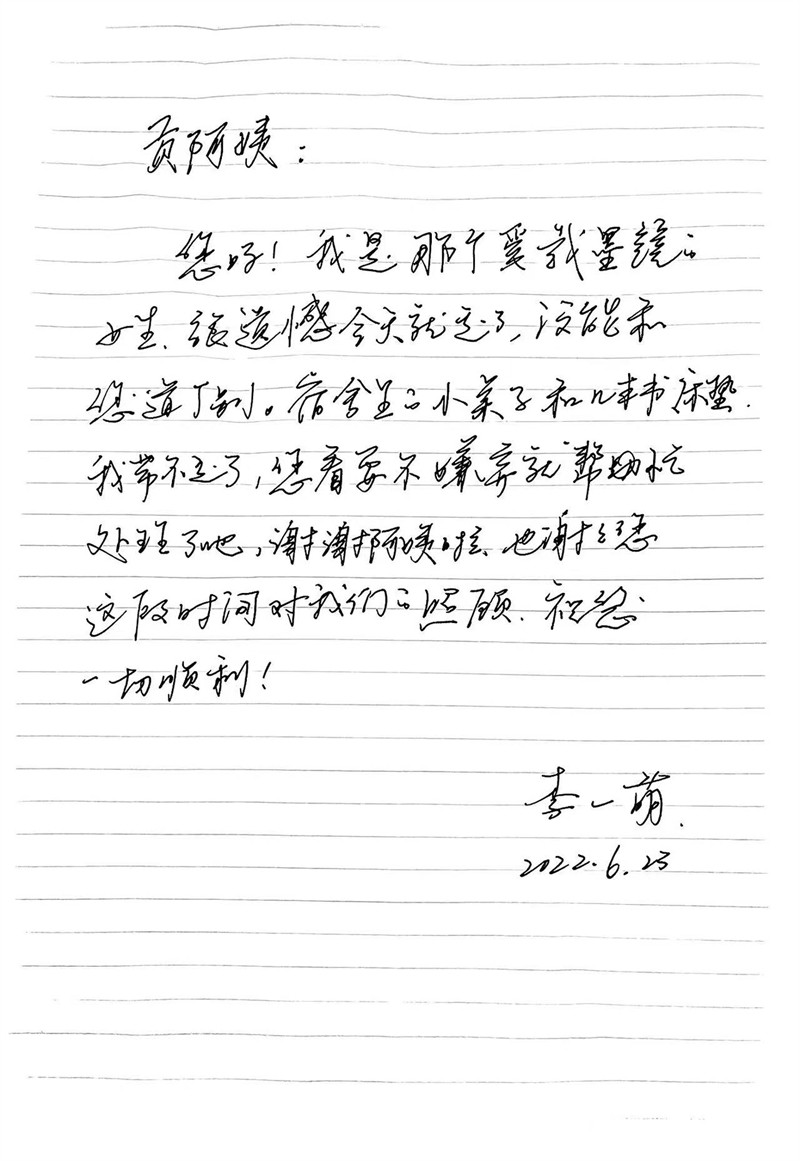 贡阿姨：
您好！我是那个爱戴墨镜的
女生、很遗憾今天就走了，没能和
您道个别。宿舍里的小桌子和几本书床垫.
我带不走了，您看要不嫌弃就帮助忙
处理了吧，谢谢阿姨啦、也谢谢您
这段时间对我们的照顾.祝您
一切顺利！
李一萌.
2022.6.23